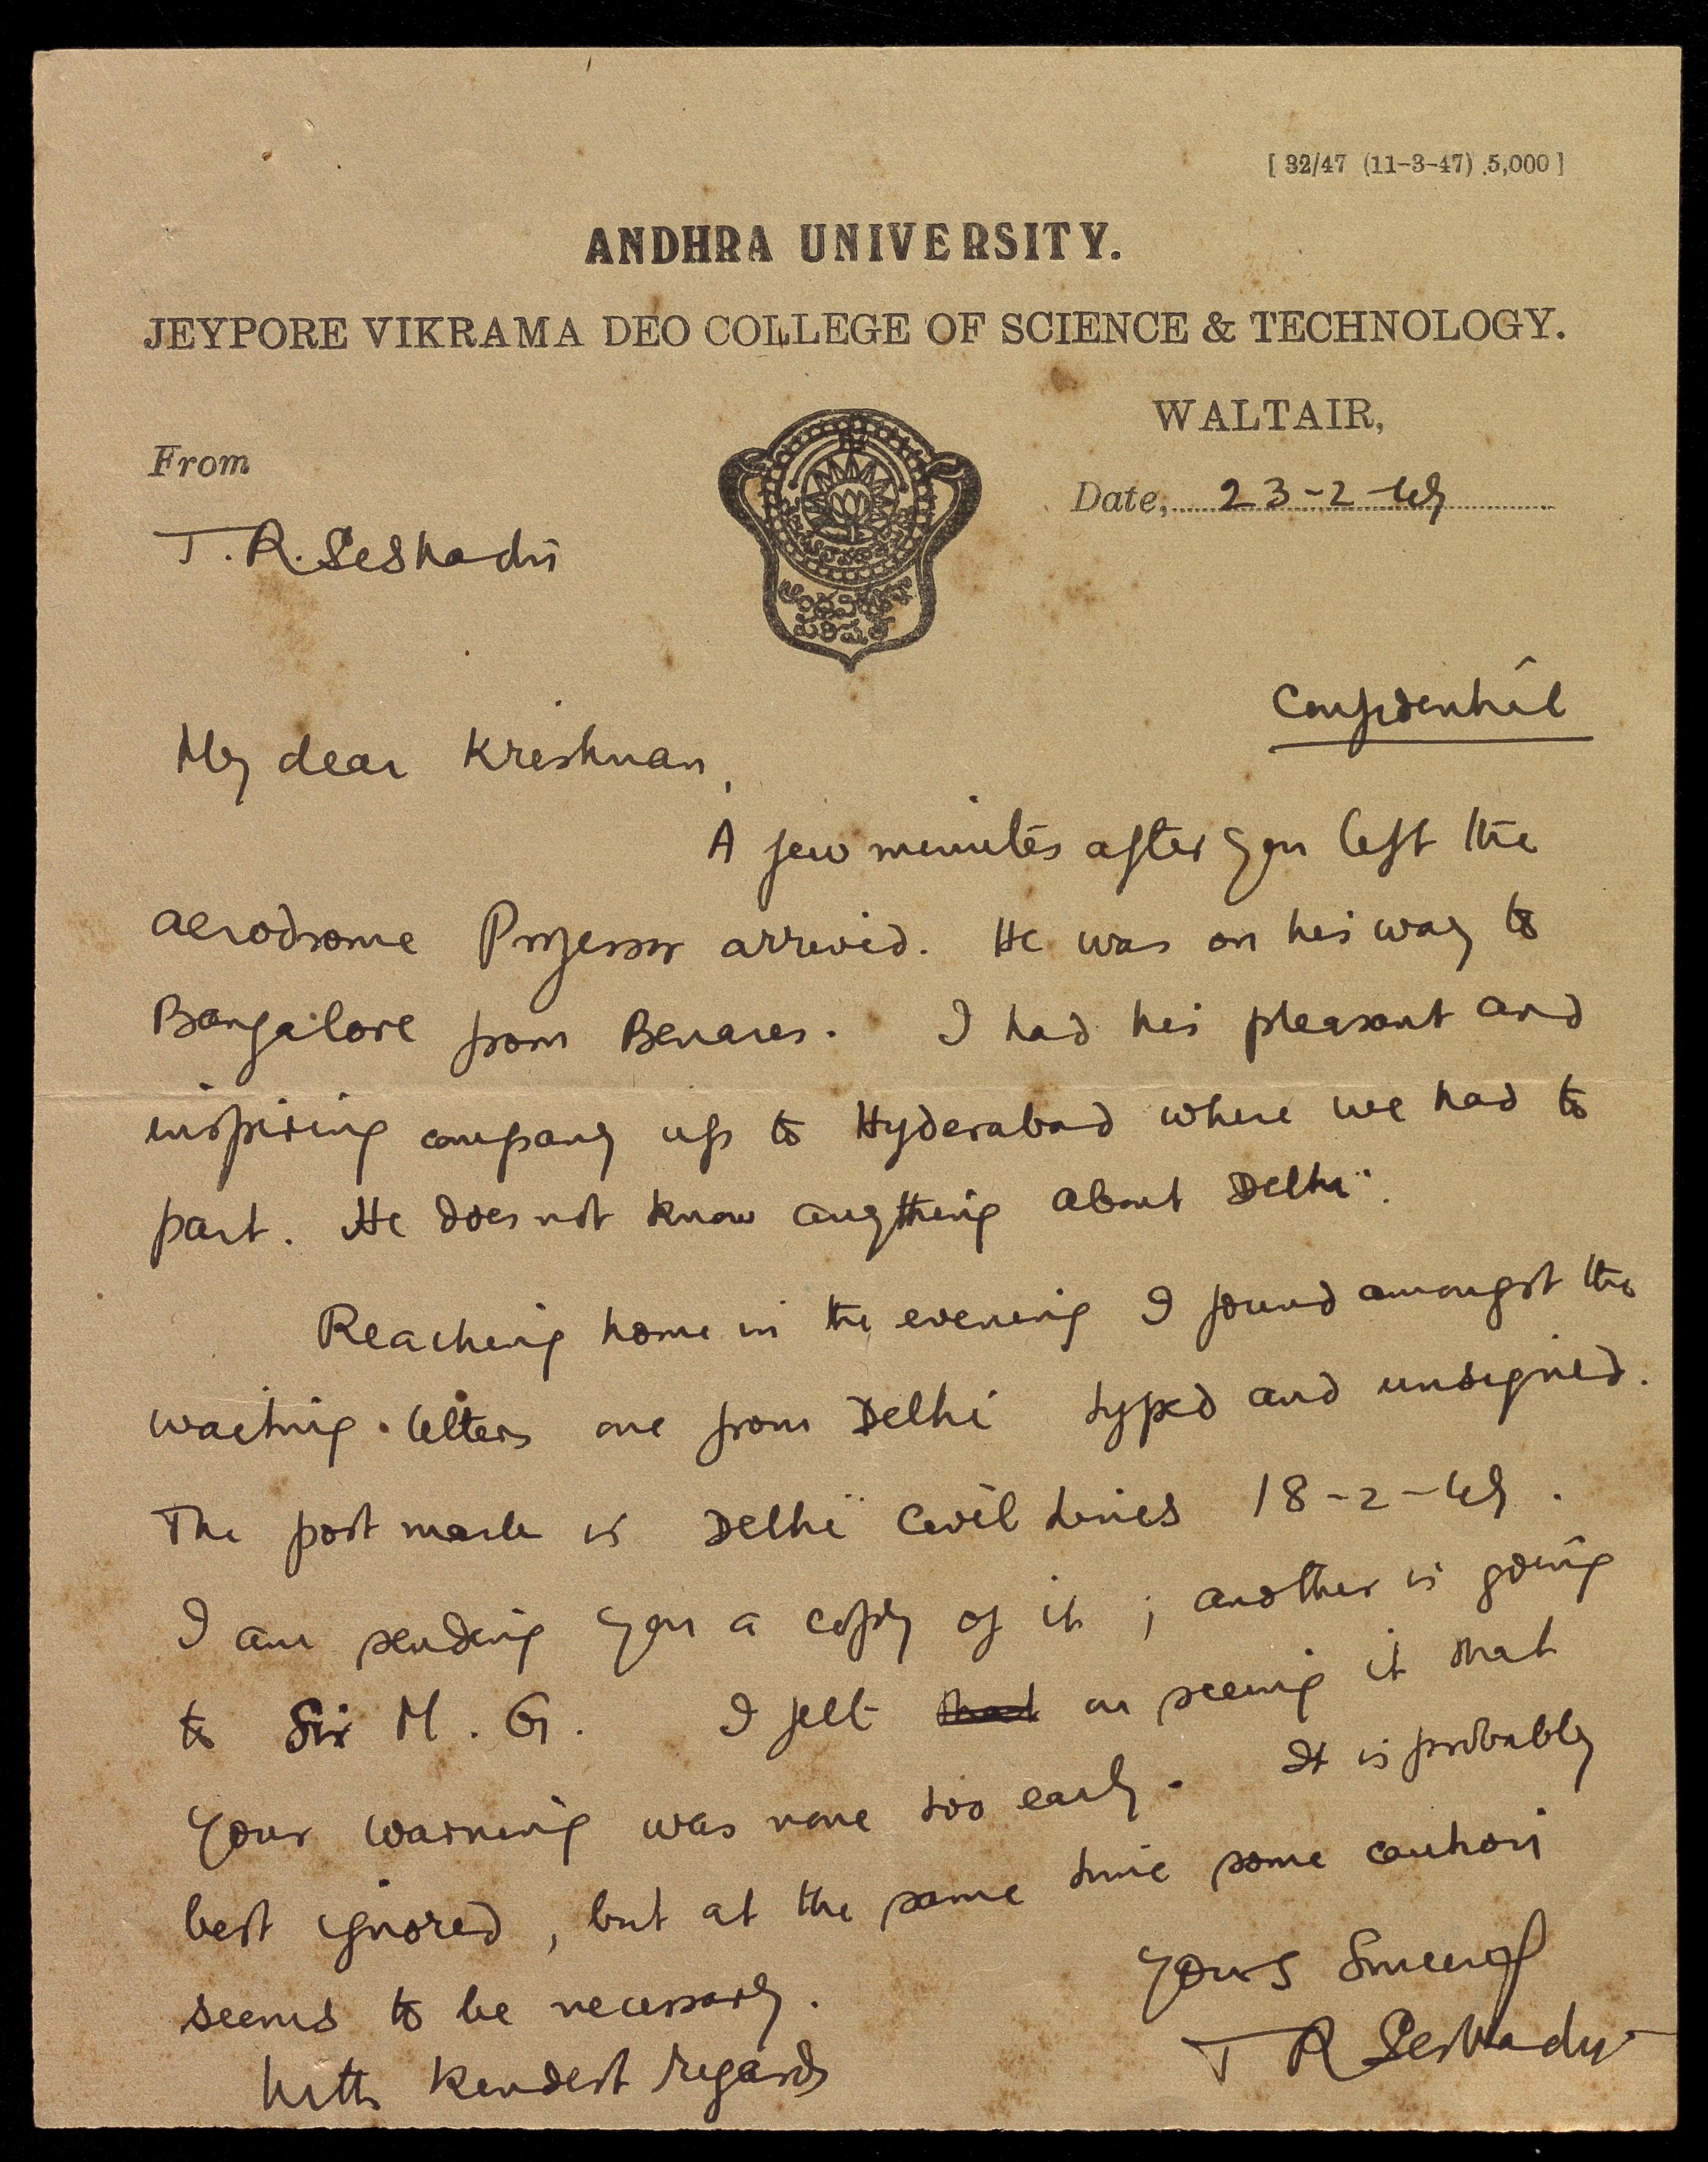 [ 32/47 (11-3-47) 5,000 ]
ANDHRA UNIVERSITY.
JEYPORE VIKRAMA DEO COLLEGE OF SCIENCE & TECHNOLOGY.
WALTAIR,
From
Date, 23-2-49
T. R. Seshadri
Confidential
My dear Krishnan,
A few minutes after you left the
aerodrome Professor arrived. He was on his way to
Bangalore from Benares. I had his pleasant and
inspiring company up to Hyderabad where we had to
part. He does not know anything about Delhi.
Reaching home in the evening I found amongst the
waiting letters one from Delhi typed and unsigned.
The post mark is Delhi Civil Lines 18-2-49.
I am sending you a copy of it; another is going
to Sir M. G. I felt that on seeing it that
your warning was none too early. It is probably
best ignored, but at the same time some caution
seems to be necessary.
With kindest regards
Yours Sincerely
T R Seshadri